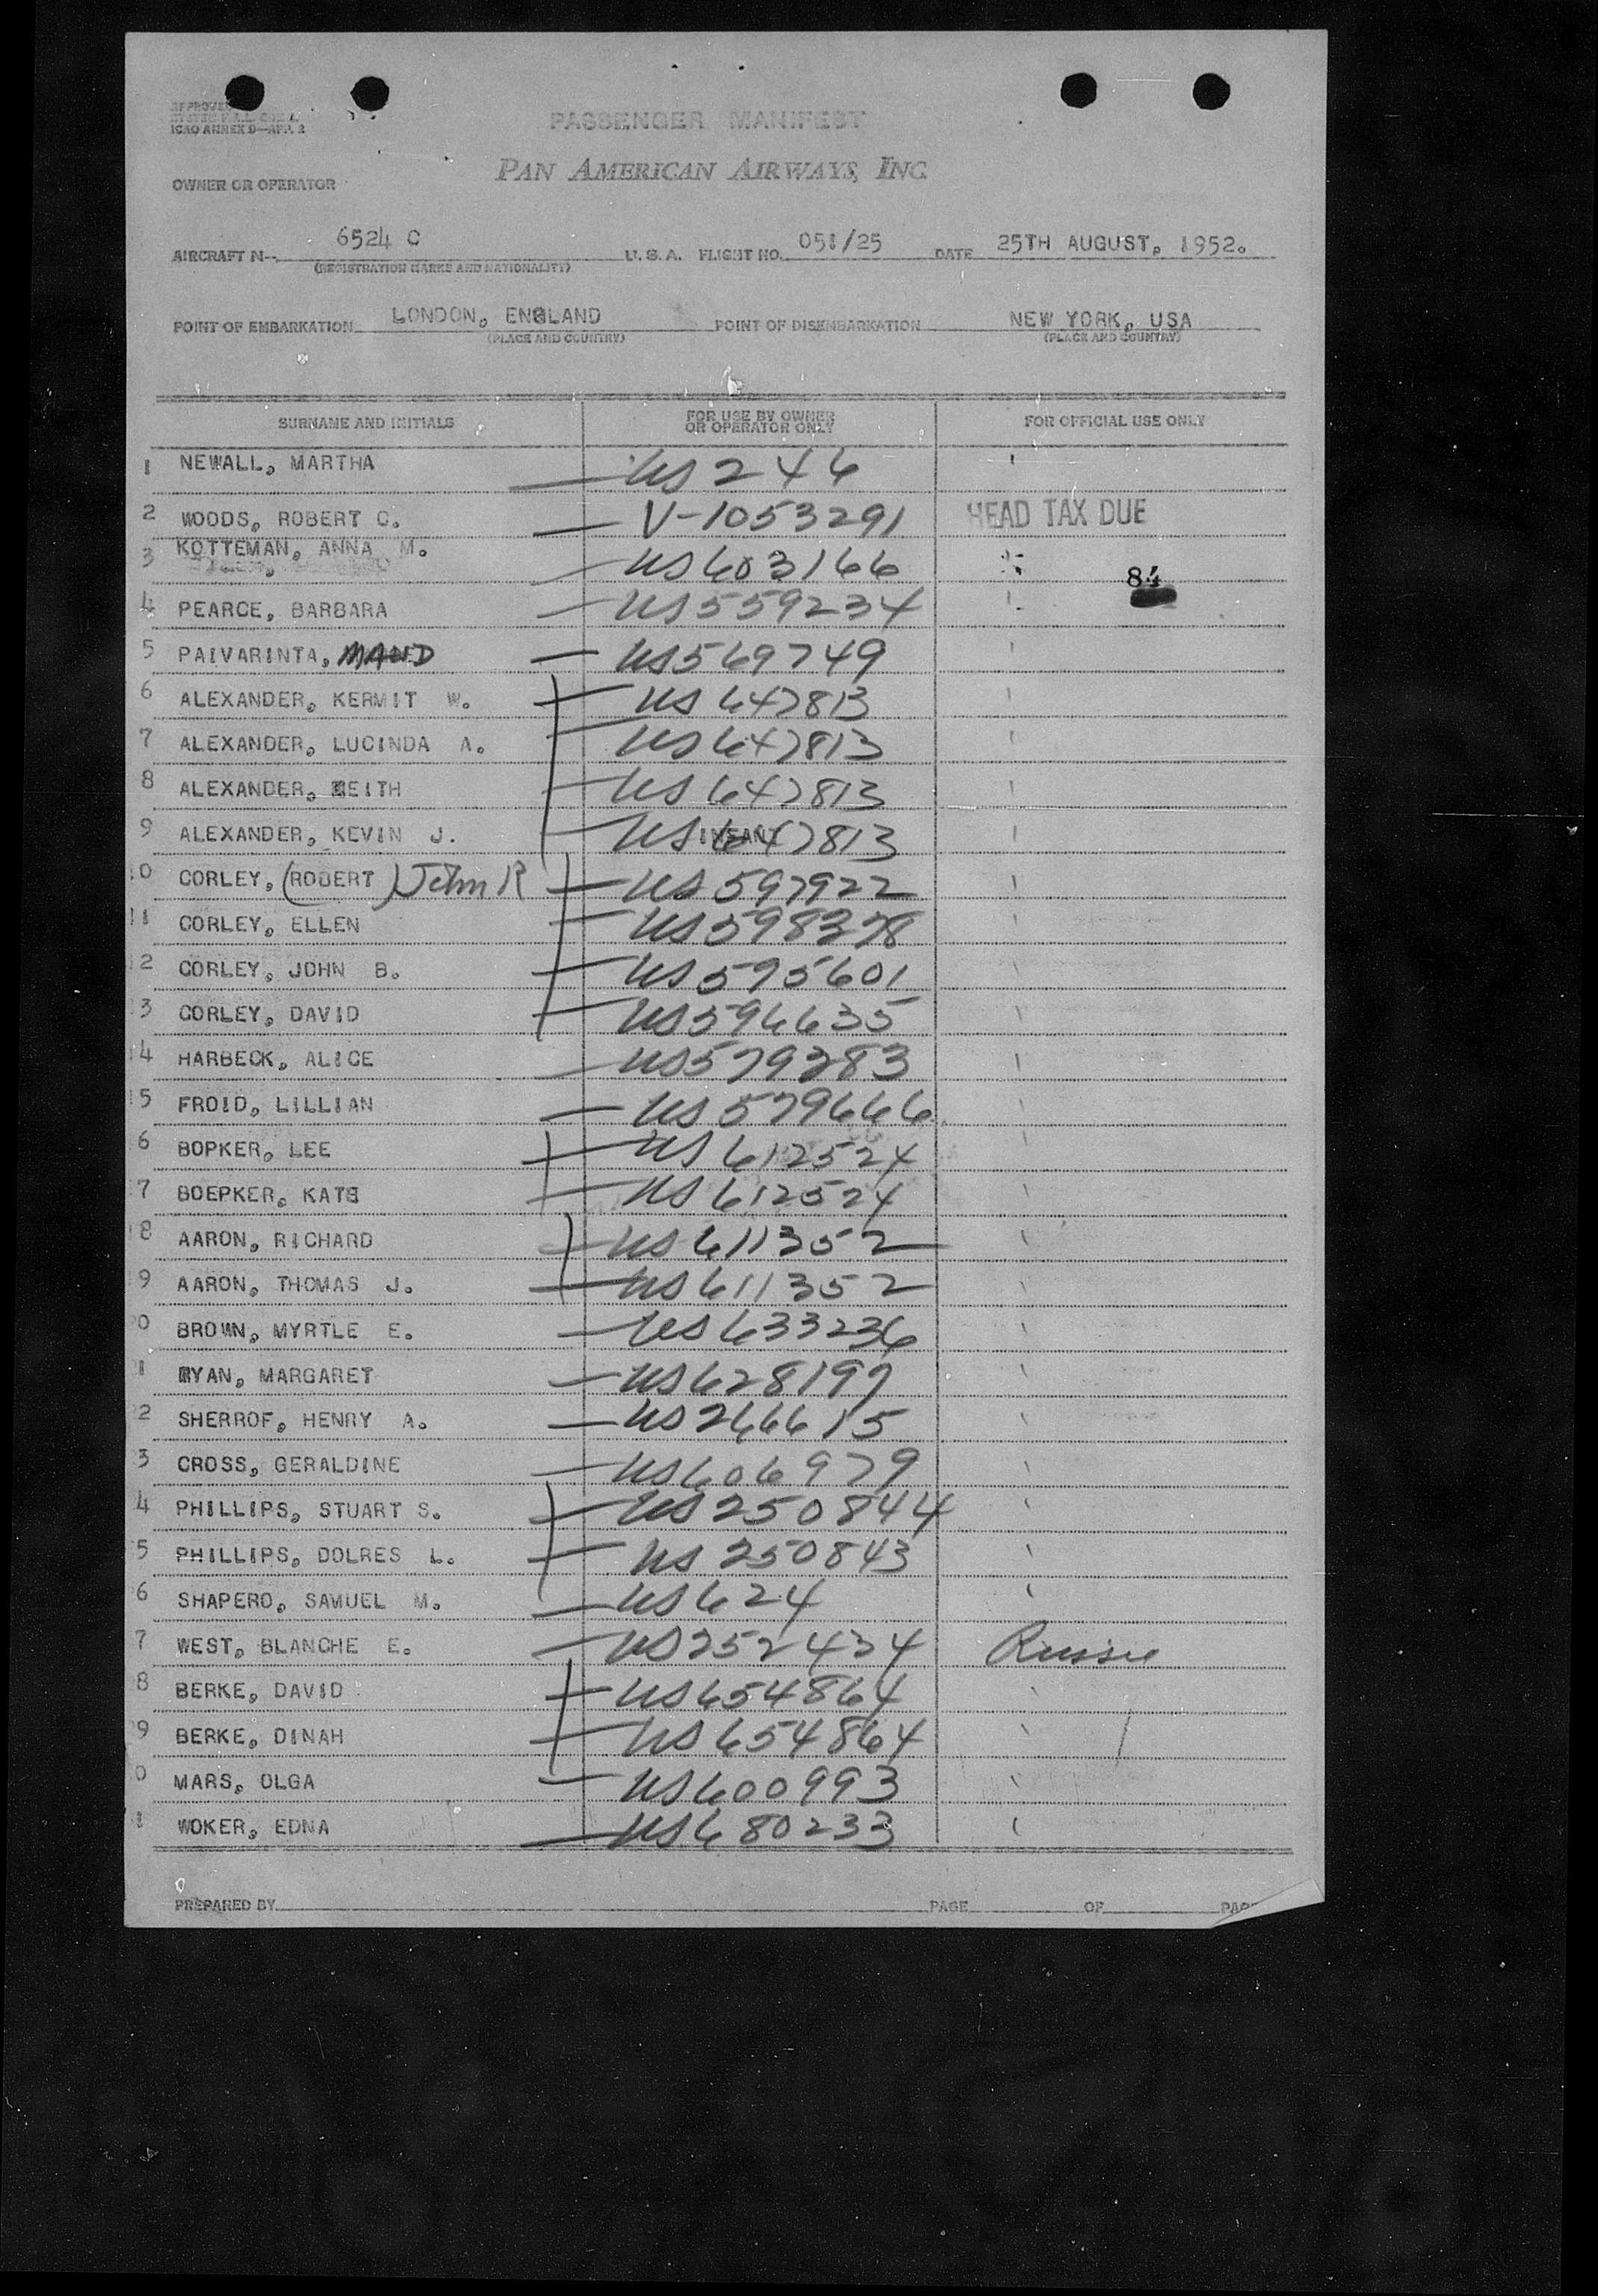 APPROVED
ICAO ANNEX 9—APP. 2
PASSENGER MANIFEST
PAN AMERICAN AIRWAYS, INC.
OWNER OR OPERATOR
AIRCRAFT N-- 6524 C U. S. A. FLIGHT NO. 051/25 DATE 25TH AUGUST, 1952.
(REGISTRATION MARKS AND NATIONALITY)
POINT OF EMBARKATION LONDON, ENGLAND POINT OF DISEMBARKATION NEW YORK, USA
(PLACE AND COUNTRY) (PLACE AND COUNTRY)
SURNAME AND INITIALS FOR USE BY OWNER OR OPERATOR ONLY FOR OFFICIAL USE ONLY
1 NEWALL, MARTHA US 246
2 WOODS, ROBERT C. V-1053291 HEAD TAX DUE
3 KOTTEMAN, ANNA M. US603166 84
4 PEARCE, BARBARA US559234
5 PAIVARINTA, MAUD US569749
6 ALEXANDER, KERMIT W. US 647813
7 ALEXANDER, LUCINDA A. US647813
8 ALEXANDER, KEITH US 647813
9 ALEXANDER, KEVIN J. INFANT US 647813
10 CORLEY, (ROBERT) John R US 597922
11 CORLEY, ELLEN US598378
12 CORLEY, JOHN B. US595601
13 CORLEY, DAVID US596635
14 HARBECK, ALICE US579283
15 FROID, LILLIAN US 579666
6 BOPKER, LEE US 612524
7 BOEPKER, KATE US 612524
18 AARON, RICHARD US 611352
9 AARON, THOMAS J. US611352
0 BROWN, MYRTLE E. US633236
1 RYAN, MARGARET US628197
2 SHERROF, HENRY A. US266615
3 CROSS, GERALDINE US606979
4 PHILLIPS, STUART S. US250844
5 PHILLIPS, DOLRES L. US 250843
6 SHAPERO, SAMUEL M. US624
7 WEST, BLANCHE E. US252424 Russie
8 BERKE, DAVID US654864
9 BERKE, DINAH US654864
0 MARS, OLGA US600993
1 WOKER, EDNA US680233
PREPARED BY PAGE OF PAGES